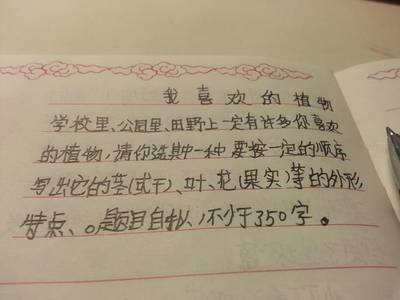 我喜欢的植物
学校里、公园里、田野上一定有许多你喜欢
的植物,请你选其中一种,要按一定的顺序
写出它的茎(或干)、叶、花(果实)等的外形
特点、。题目自拟、不少于350字。